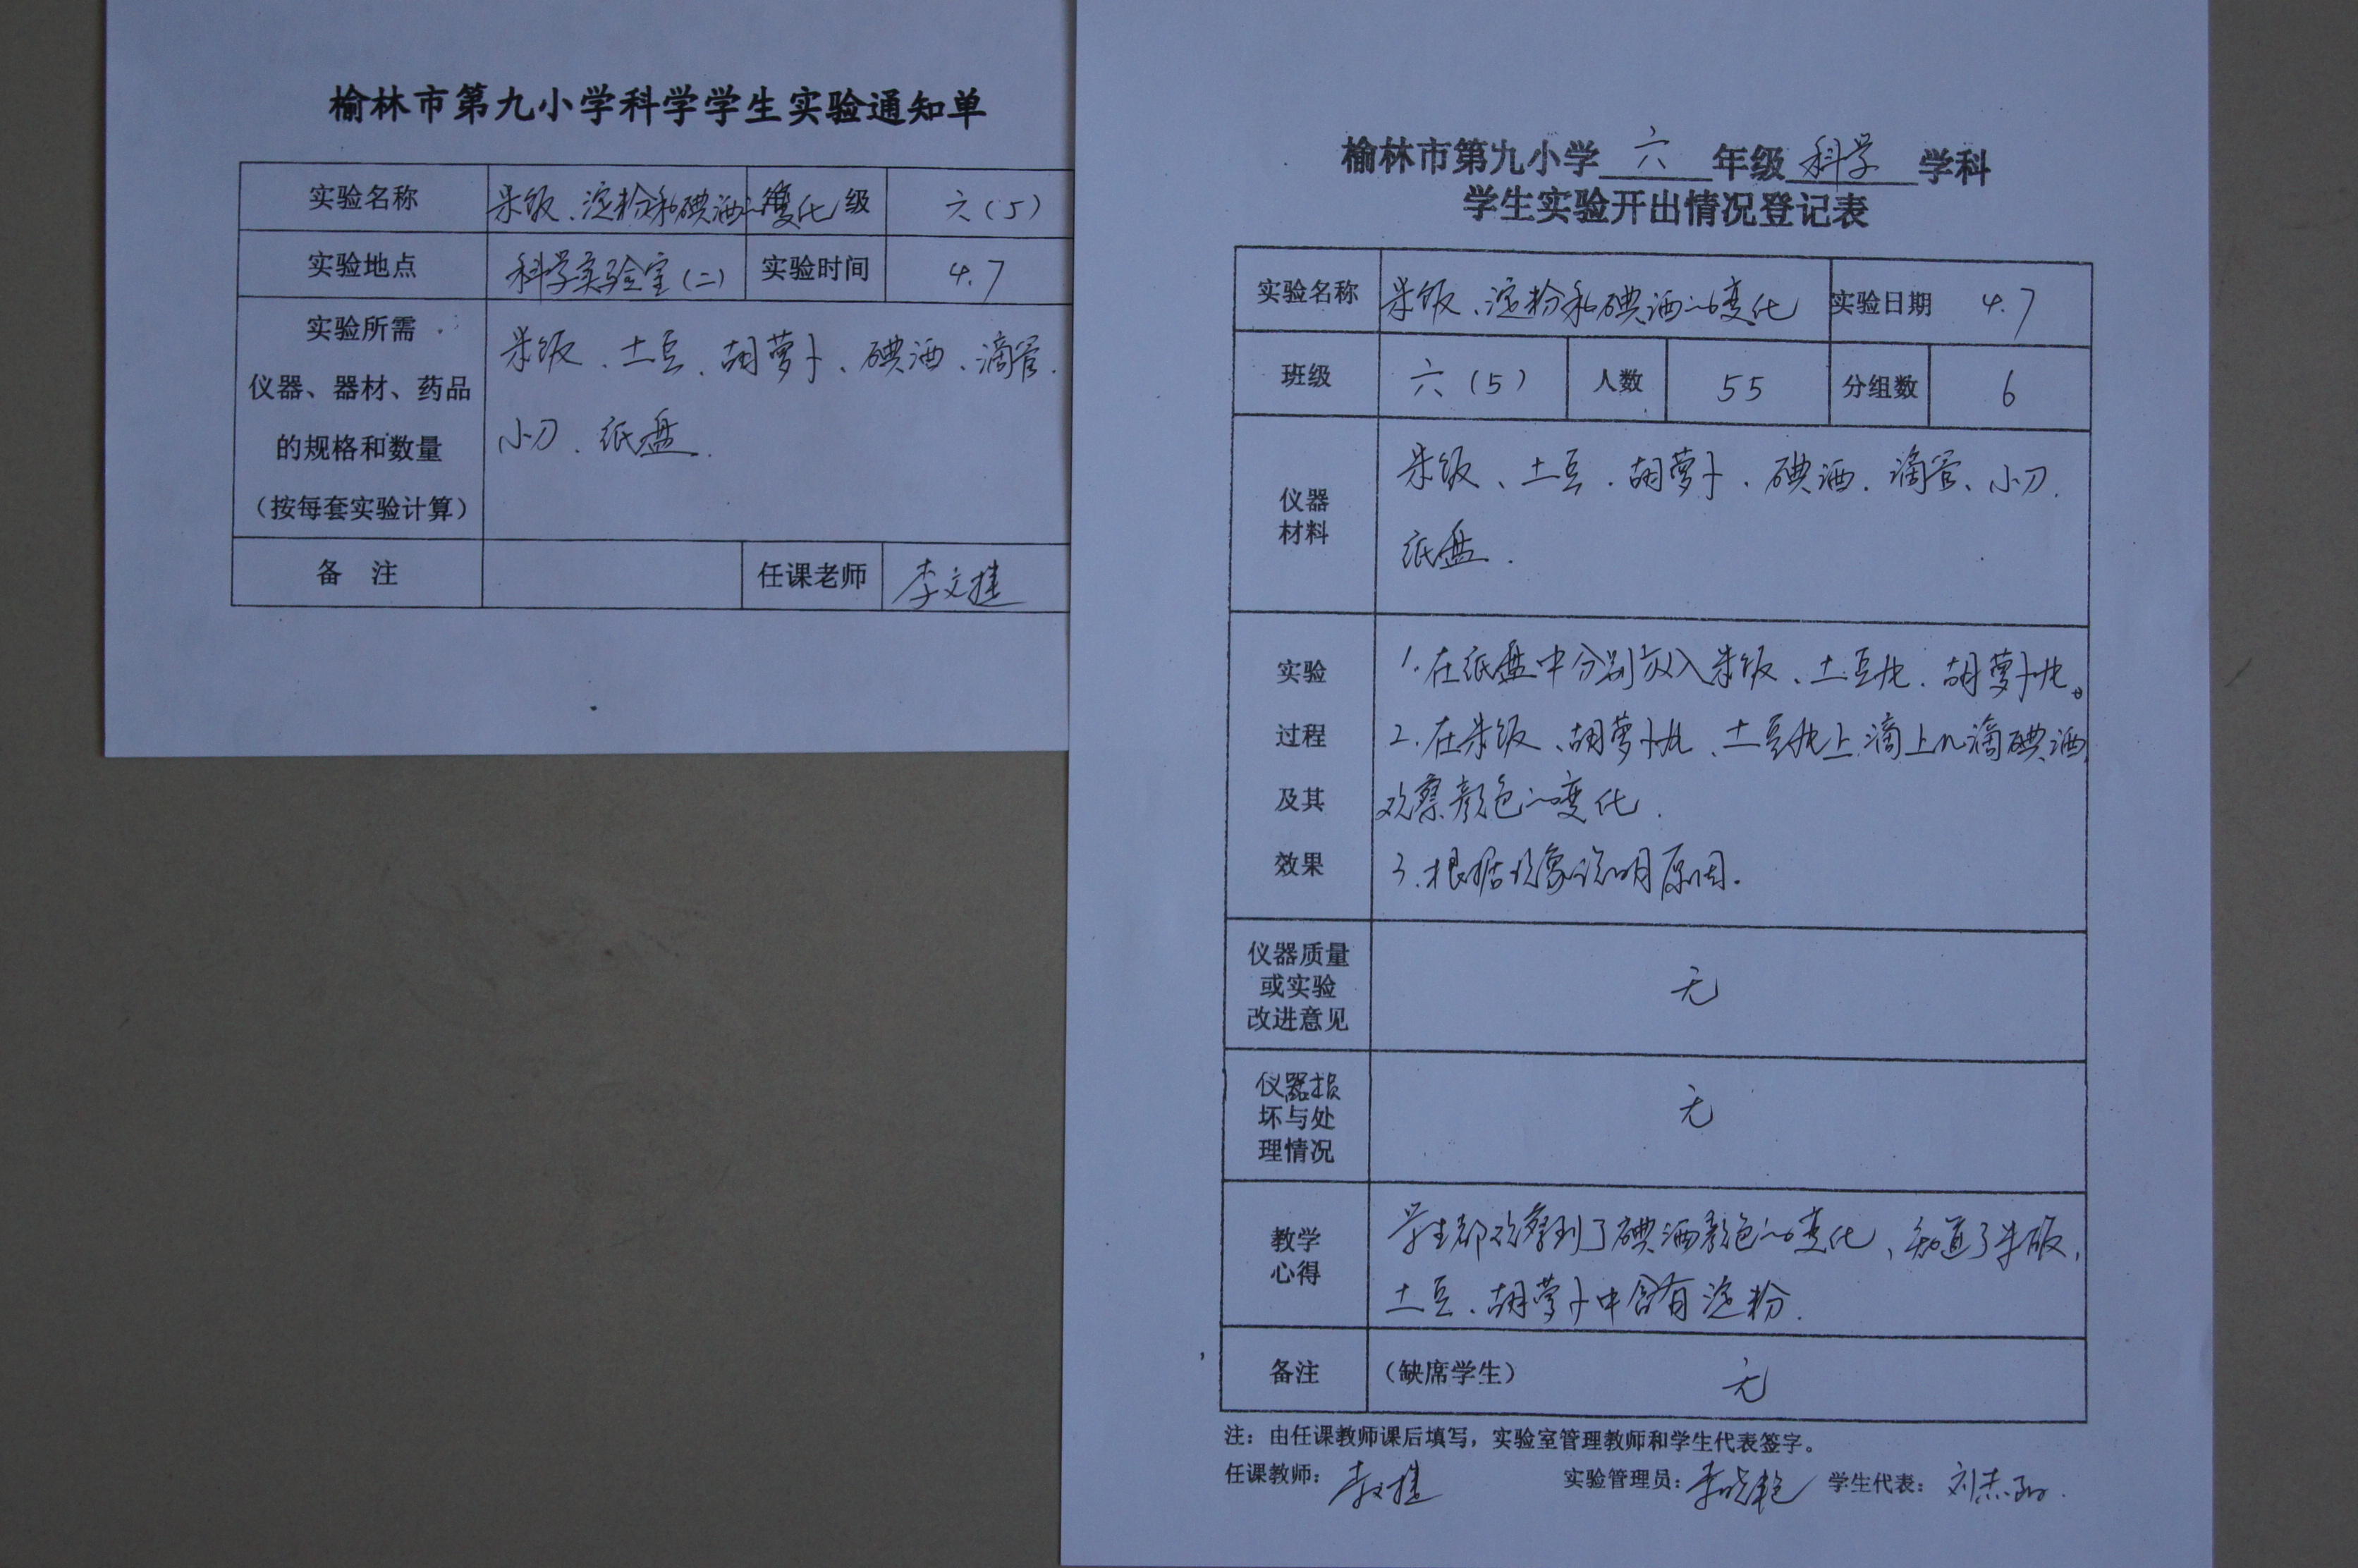 榆林市第九小学科学学生实验通知单
实验名称 米饭、淀粉和碘酒的变化 级 六(5)
实验地点 科学实验室(二) 实验时间 4.7
实验所需
仪器、器材、药品
的规格和数量
(按每套实验计算)
米饭、土豆、胡萝卜、碘酒、滴管.
小刀.纸盘.
备 注 任课老师 李文捷
榆林市第九小学 六 年级 科学 学科
学生实验开出情况登记表
实验名称 米饭、淀粉和碘酒的变化 实验日期 4.7
班级 六(5) 人数 55 分组数 6
仪器
材料
米饭、土豆.胡萝卜、碘酒.滴管、小刀.
纸盘.
实验
过程
及其
效果
1.在纸盘中分别放入米饭、土豆片.胡萝卜片。
2.在米饭、胡萝卜片、土豆片上滴上几滴碘酒,
观察颜色的变化.
3.根据现象说明原因.
仪器质量
或实验
改进意见
无
仪器损
坏与处
理情况
无
教学
心得
学生都观察到了碘酒颜色的变化、知道了米饭,
土豆、胡萝卜中含有淀粉.
备注 (缺席学生) 无
注:由任课教师课后填写,实验室管理教师和学生代表签字。
任课教师: 李文捷 实验管理员: 李晓艳 学生代表: 刘志